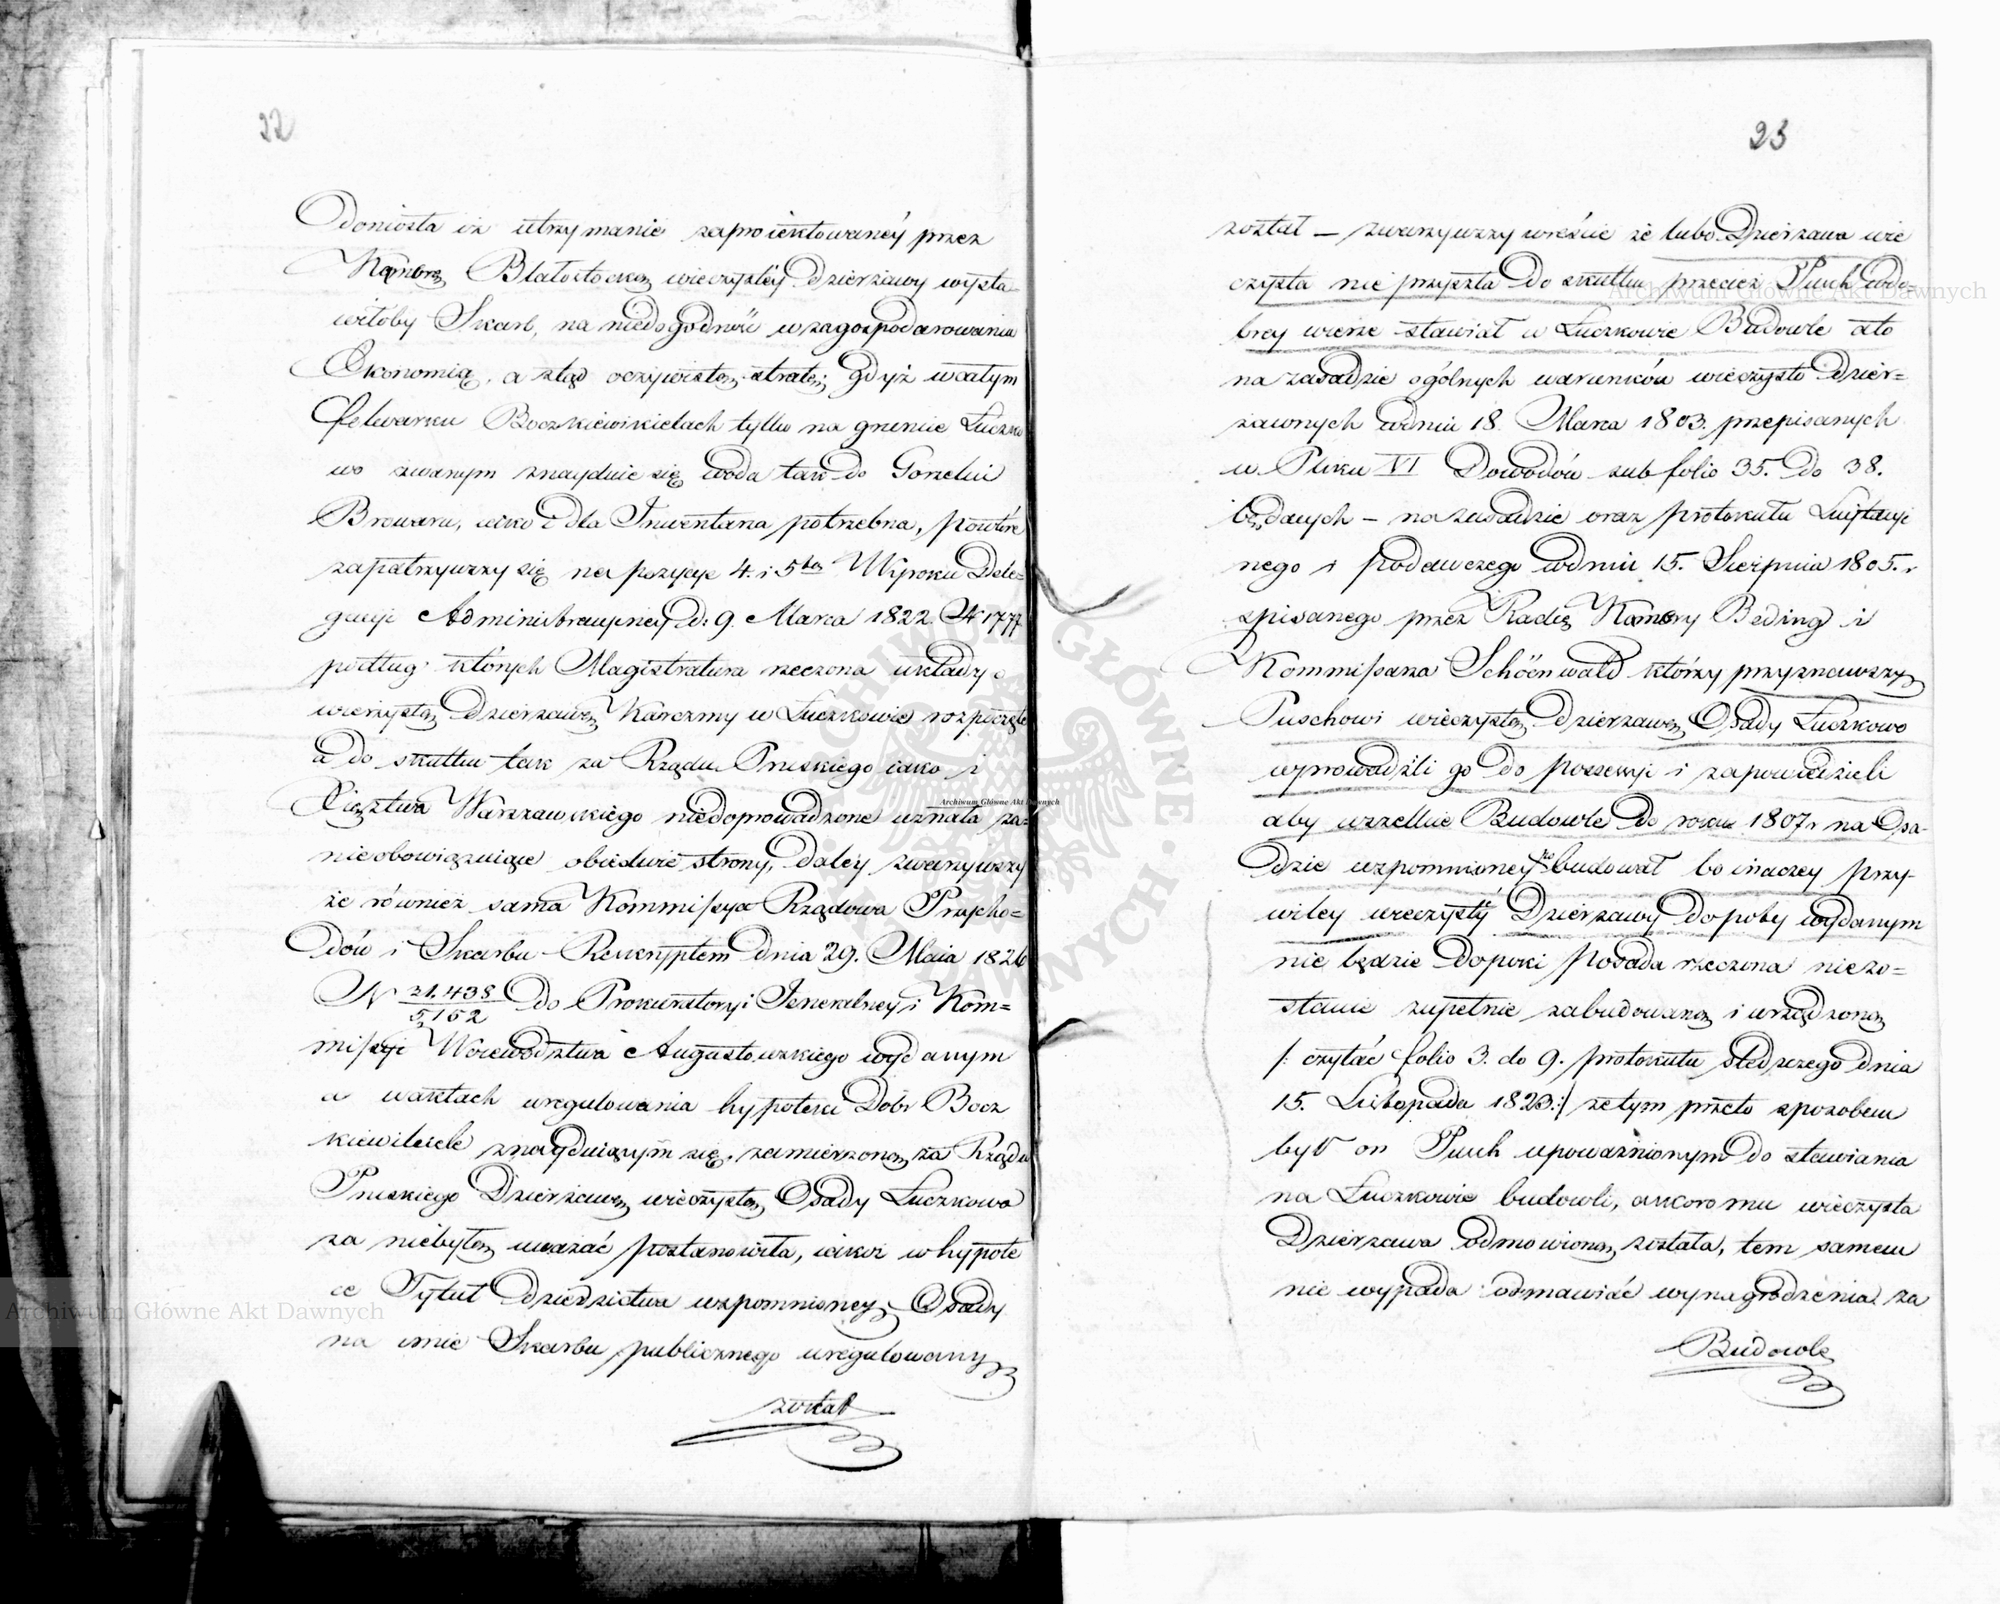 22
doniosła iż utrzymanie zaproiektowaney przez
Kamerę Białostocką wieczystey dzierżawy wysta
wiłoby Skarb, na niedogodność w zagospodarowaniu
Ekonomią, a ztąd oczywistą stratę; gdyż w całym
folwarku Boczkiewikielach tylko na gruncie Łuczko
wo zwanym znayduie się woda tak do Gorzelni
Browaru, iako i dla Inwentarza potrzebna, powtóre
zapatrzywszy się na pozycye 4. i 5tą Wyroku Dele=
gacyi Administracyiney d: 9. Marca 1822 N 1777
podług których Magistratura rzeczona układy o
wieczystą dzierżawę Karczmy w Łuczkowie rozpoczęte
a do skutku tak za Rządu Pruskiego iako i
Xięztwa Warszawskiego niedoprowadzone uznała za=
nieobowiązuiące obiedwie strony, daley zważywszy
że również sama Kommissya Rządowa Przycho=
dów i Skarbu Reskryptem dnia 29. Maia 1826
N 21.438/5,152 do Prokuratoryi Jeneralney i Kom=
missyi Woiewództwa Augustowskiego wydanym
a w aktach uregulowania hypoteki Dobr Bocz
kiewikiele znayduiącym się, zamierzoną za Rządu
Pruskiego Dzierżawę wieczystą Osady Łuczkowo
za niebyłą uważać postanowiła, iakoż w hypote
ce Tytuł dziedzictwa wzpomnioney Osady
na imie Skarbu publicznego uregulowany
został
23
został — zważywszy wreście że lubo Dzierżawa wie
czysta nie przyszła do skutku przecież Puch w do=
brey wierze stawiał w Łuczkowie Budowle a to
na zasadzie ogólnych warunków wieczysto dzier=
żawnych w dniu 18. Marca 1803. przepisanych
w Pliku VI Dowodów sub folio 35. do 38.
będących — na zasadzie oraz protokułu Lustracyi
nego i podawczego w dniu 15. Sierpnia 1805. r
spisanego przez Radcę Kamery Beding i
Kommissarza Schöenwald którzy przyznawszy
Puschowi wieczystą dzierżawę Osady Łuczkowo
wprowadzili go do possessyi i zapowiedzieli
aby wszelkie Budowle do roku 1807 r na Osa=
dzie wzpomnioney budował bo inaczey przy=
wiley wieczystéy Dzierżawy dopóty wydanym
nie będzie dopoki Posada rzeczona niezo=
stanie zupełnie zabudowaną i urządzoną
/: czytać folio 3. do 9. protokułu śledczego dnia
15. Listopada 1823:/ zetym przeto sposobem
był on Puch upoważnionym do stawiania
na Łuczkowie budowli, a skoro mu wieczysta
Dzierżawa odmowioną została, tem samem
nie wypada odmawiać wynagrodzenia za
Budowle
Archiwum Główne Akt Dawnych
Archiwum Główne Akt Dawnych
Archiwum Główne Akt Dawnych
ARCHIWUM GŁÓWNE AKT DAWNYCH